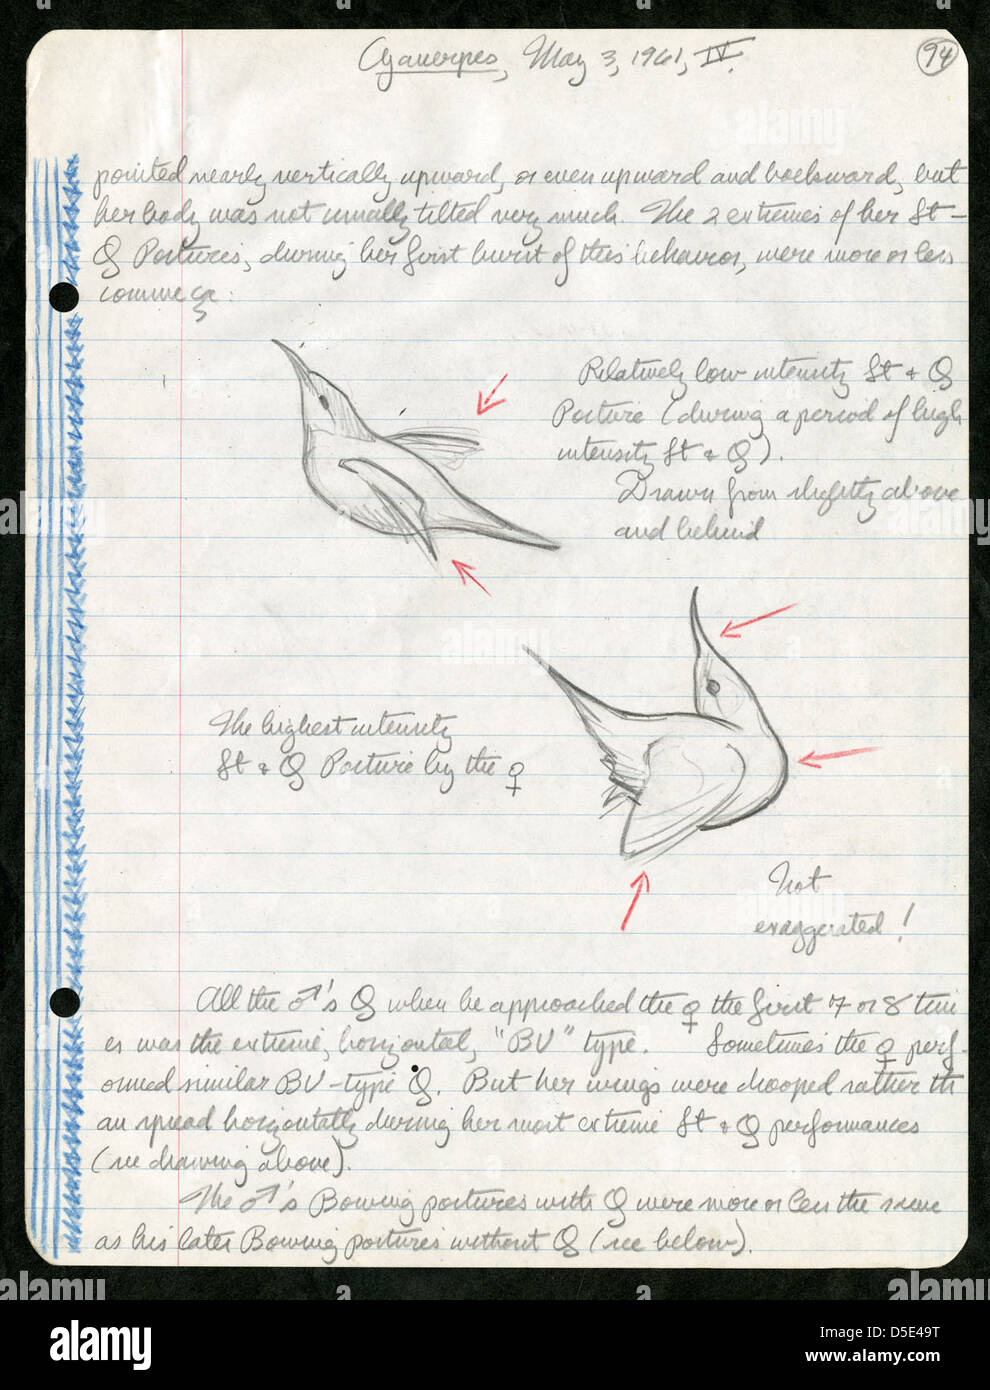 Cyanerpes, May 3, 1961, IV.
94
pointed nearly vertically upward, or even upward and backward, but
her body was not usually tilted very much. The 2 extremes of her St -
Q Postures, during her first burst of this behavior, were more or less
comme ça :
Relatively low intensity St + Q
Posture (during a period of high
intensity St + Q).
Drawn from slightly above
and behind
The highest intensity
St + Q Posture by the ♀
Not
exaggerated!
All the ♂'s Q when he approached the ♀ the first 7 or 8 tim
es was the extreme, horizontal, "BV" type. Sometimes the ♀ perf-
ormed similar BV-type Q. But her wings were drooped rather th
an spread horizontally during her most extreme St + Q performances
(see drawing above).
The ♂'s Bowing postures with Q were more or less the same
as his later Bowing postures without Q (see below).
alamy
Image ID: D5E49T
www.alamy.com